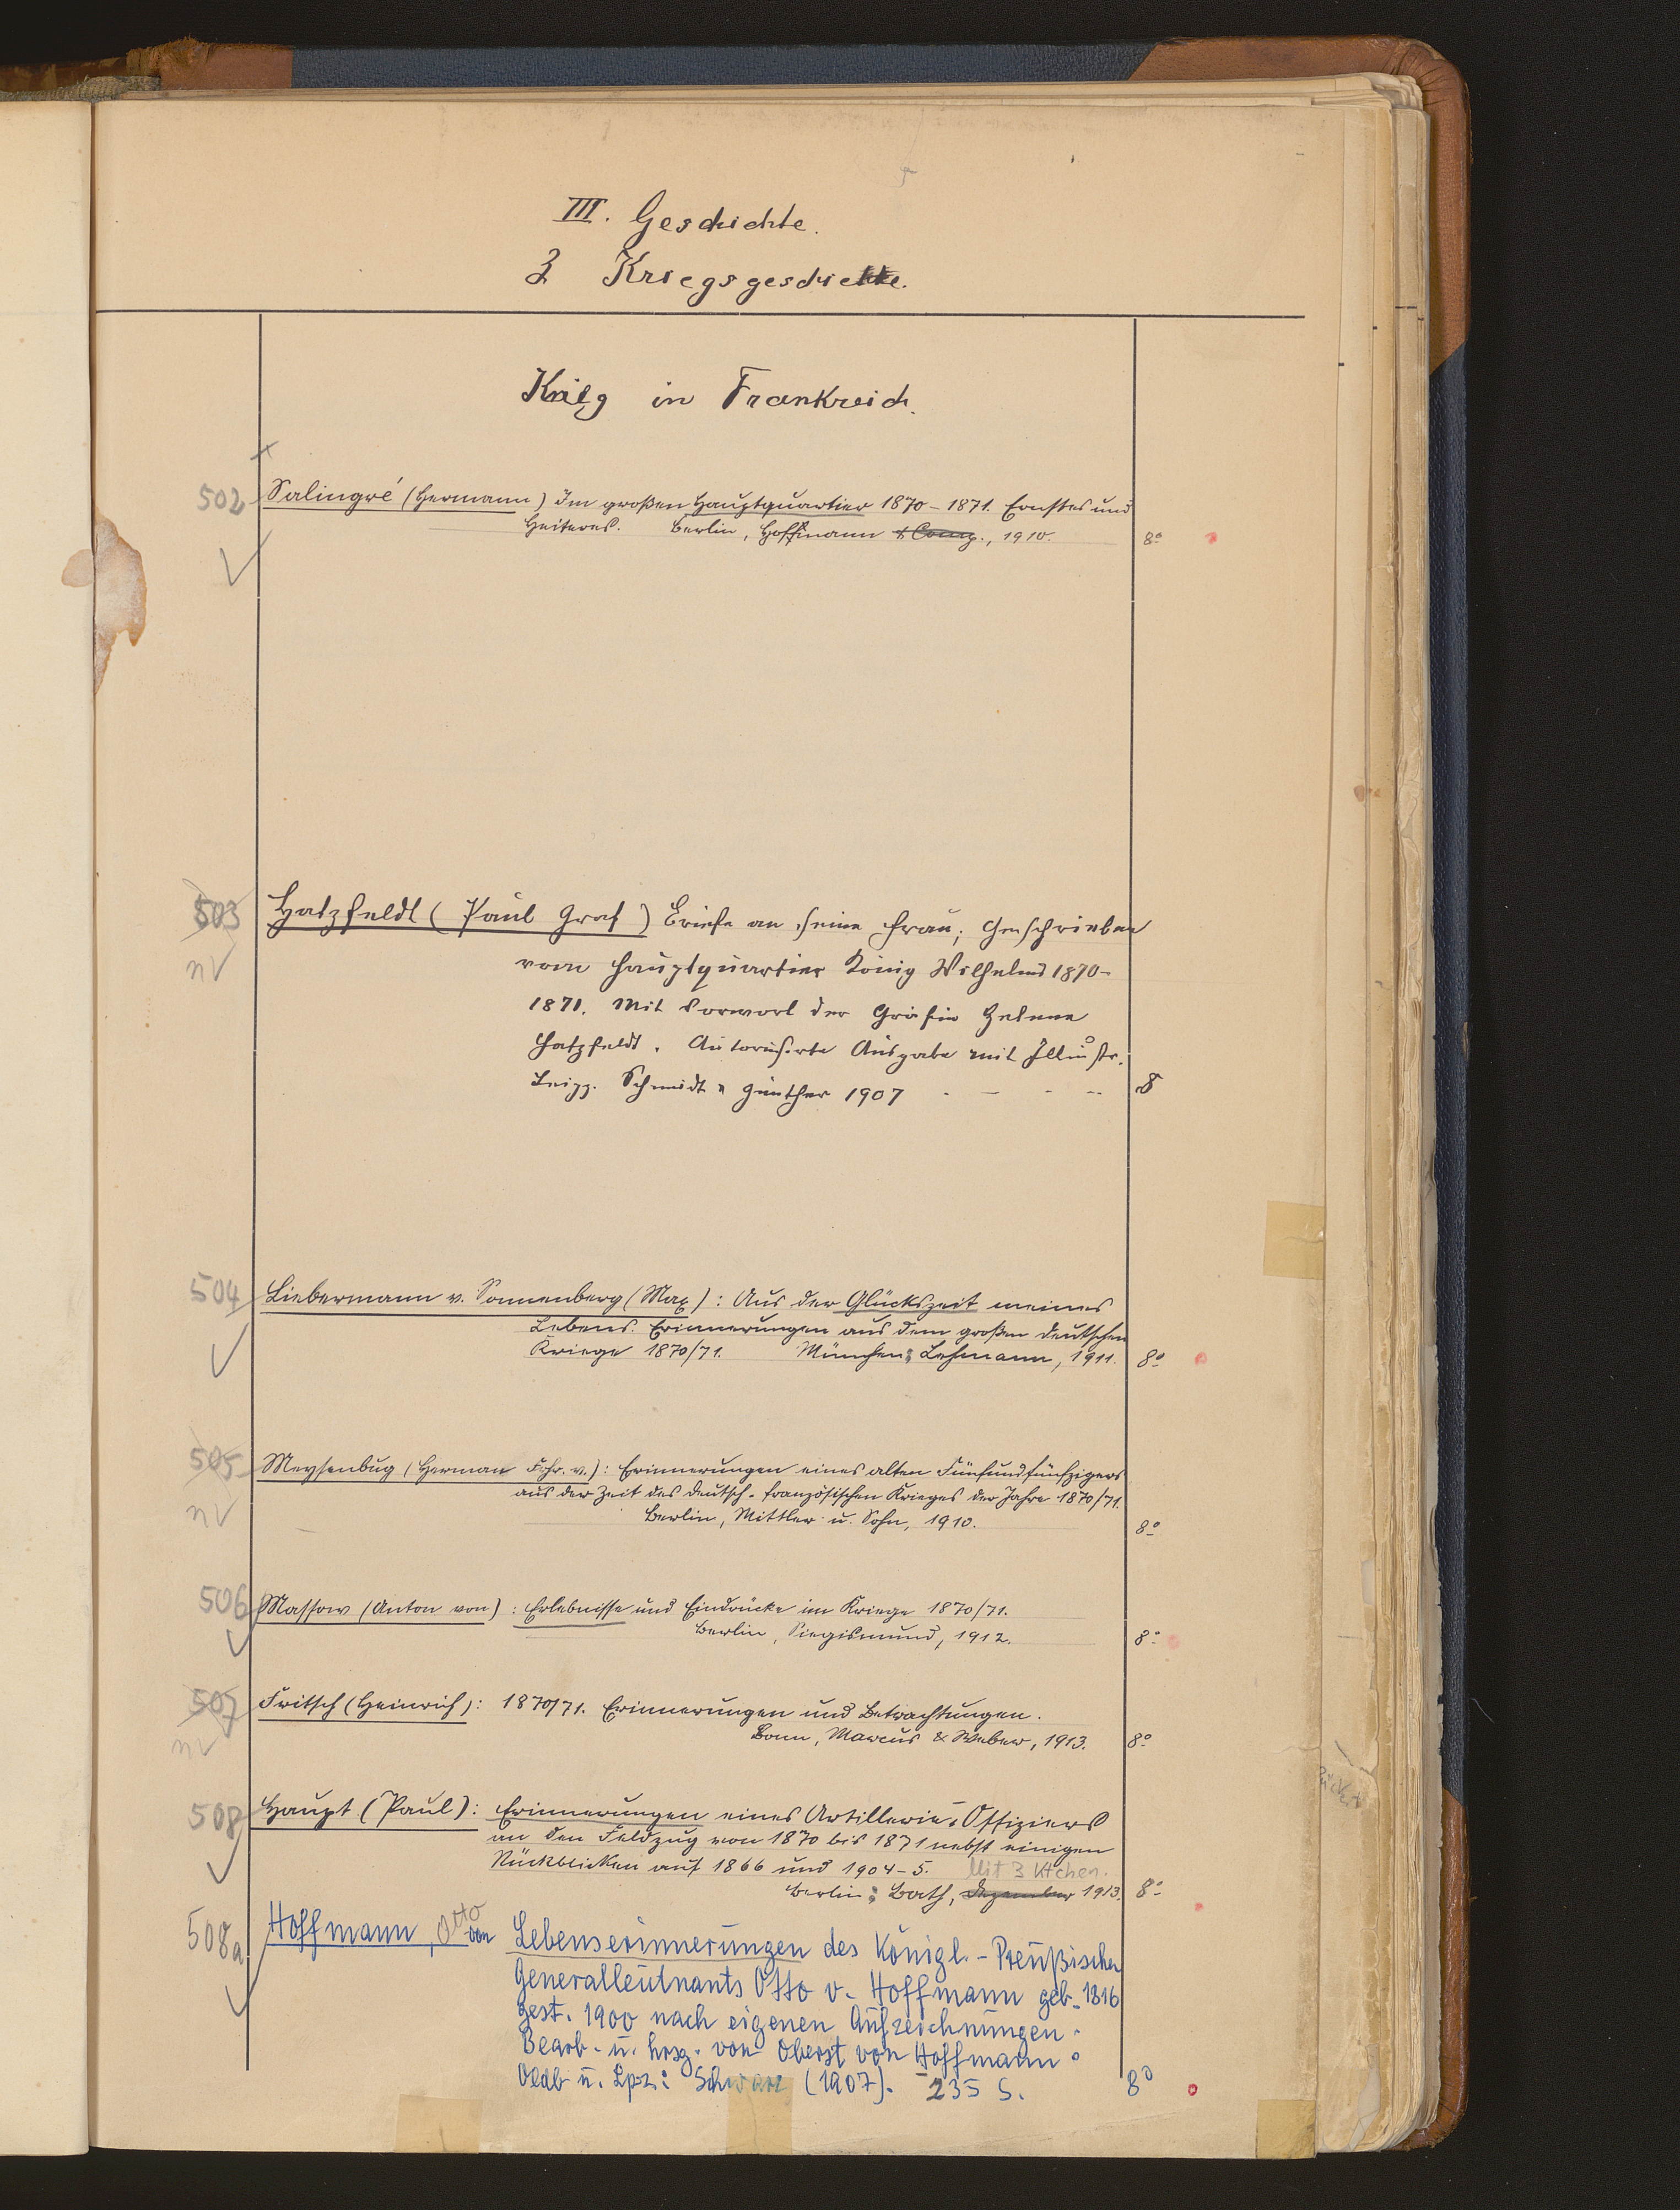 III. Geschichte.
3 Kriegsgeschichte.
Krieg in Frankreich.
502 Salingré (Hermann) Im großen Hauptquartier 1870-1871. Ernstes und
Heiteres. Berlin, Hoffmann & Comp., 1910. 8°
503 Hatzfeldt (Paul Graf) Briefe an seine Frau; Geschrieben
nv vom Hauptquartier König Wilhelms 1870-
1871. Mit Vorwort der Gräfin Helene
Hatzfeldt. Autorisirte Ausgabe mit Illustr.
Leipz. Schmidt u Günther 1907 8°
504 Liebermann v. Sonnenberg (Max): Aus der Glückszeit meines
Lebens. Erinnerungen aus dem großen deutschen
Kriege 1870/71. München: Lehmann, 1911. 8°
505 Meysenbug (Herman Frhr. v.): Erinnerungen eines alten Fünfundfünfzigers
nv aus der Zeit des deutsch-französischen Krieges der Jahre 1870/71.
Berlin, Mittler u. Sohn, 1910. 8°
506 Massow (Anton von): Erlebnisse und Eindrücke im Kriege 1870/71.
Berlin, Siegismund, 1912. 8°
507 Fritsch (Heinrich): 1870/71. Erinnerungen und Betrachtungen.
nv Bonn, Marcus & Weber, 1913. 8°
508 Haupt (Paul): Erinnerungen eines Artillerie-Offiziers
an den Feldzug von 1870 bis 1871 nebst einigen
Rückblicken auf 1866 und 1904-5. Mit 3 Ktchen.
Berlin: Bath, Dezember 1913. 8°
508a Hoffmann, Otto von Lebenserinnerungen des Königl.-Preußischen
Generalleutnants Otto v. Hoffmann geb. 1816
gest. 1900 nach eigenen Aufzeichnungen.
Bearb. u. hrsg. von Oberst von Hoffmann.
Oldb u. Lpz.: Schwarz (1907). 235 S. 8°